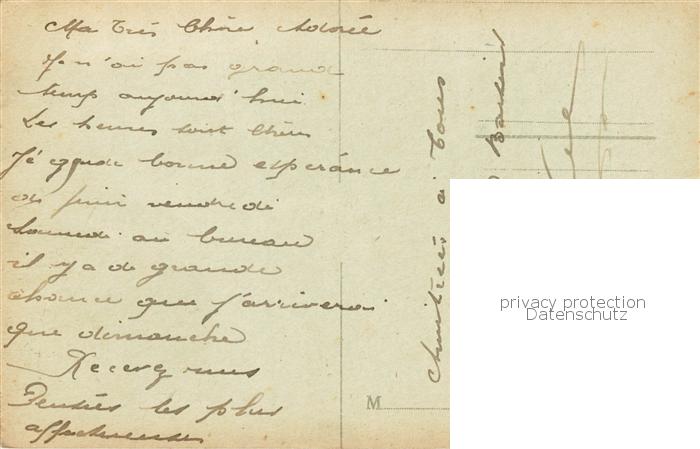 Ma Très Chère Adorée
Je n'ai pas grand
temp aujourd'hui
Les heures sont Chères
Je garde bonne espérance
de finir vendredi
Samedi au bureau
il y a de grande
chance que j'arriverai
que dimanche
Recevez mes
Pensées les plus
affectueuses
Amitiés à tous
Baisers
M
privacy protection
Datenschutz